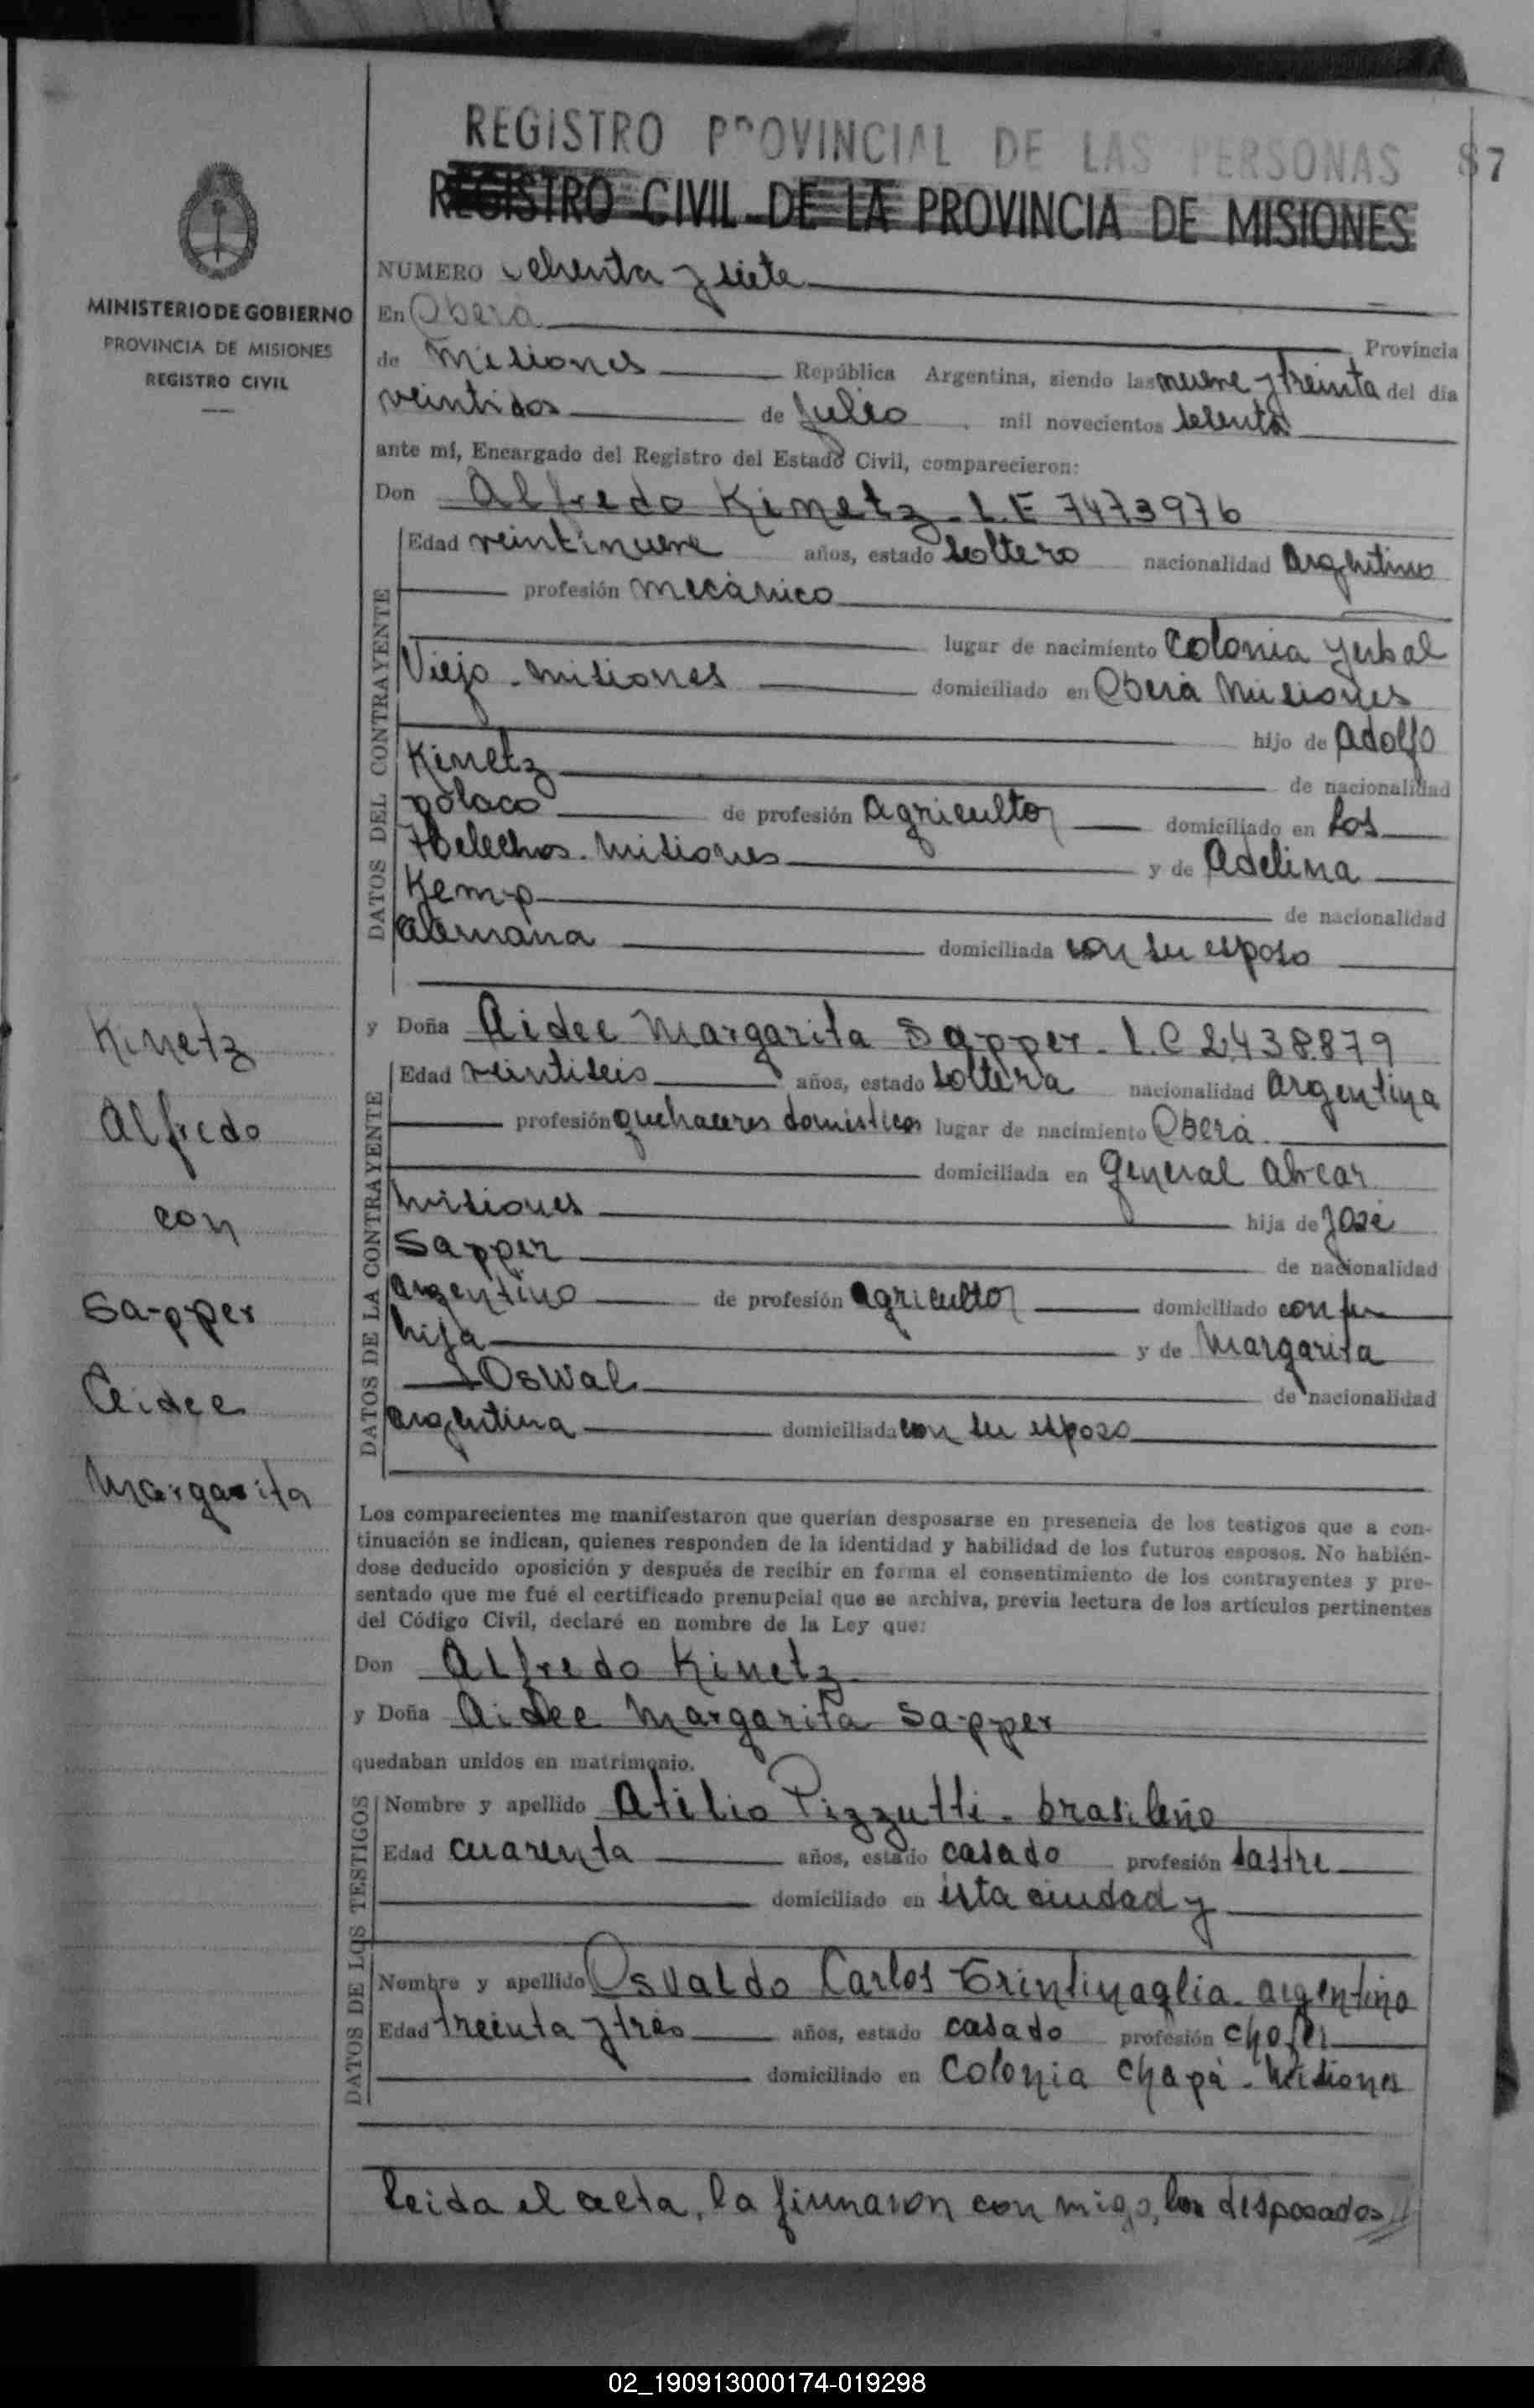 REGISTRO PROVINCIAL DE LAS PERSONAS 87
REGISTRO CIVIL DE LA PROVINCIA DE MISIONES
MINISTERIO DE GOBIERNO
PROVINCIA DE MISIONES
REGISTRO CIVIL
NUMERO ochenta y siete
En Oberá Provincia
de Misiones República Argentina, siendo las nueve y treinta del día
veintidos de Julio mil novecientos setenta
ante mí, Encargado del Registro del Estado Civil, comparecieron:
Don Alfredo Kinetz - L.E 7473976
DATOS DEL CONTRAYENTE
Edad veintinueve años, estado soltero nacionalidad argentino
profesión mecánico
lugar de nacimiento Colonia Yerbal
Viejo - Misiones domiciliado en Oberá Misiones
hijo de Adolfo
Kinetz de nacionalidad
polaco de profesión agricultor domiciliado en Los
Helechos - Misiones y de Adelina
Kemp de nacionalidad
alemana domiciliada con su esposo
y Doña Aidee Margarita Sapper - L.C 2.438.879
DATOS DE LA CONTRAYENTE
Edad veintiseis años, estado soltera nacionalidad argentina
profesión quehaceres domésticos lugar de nacimiento Oberá
domiciliada en General Alvear
Misiones hija de José
Sapper de nacionalidad
argentino de profesión agricultor domiciliado con su
hija y de Margarita
Oswal de nacionalidad
argentina domiciliada con su esposo
Kinetz
Alfredo
con
Sapper
Aidee
Margarita
Los comparecientes me manifestaron que querían desposarse en presencia de los testigos que a con-
tinuación se indican, quienes responden de la identidad y habilidad de los futuros esposos. No habién-
dose deducido oposición y después de recibir en forma el consentimiento de los contrayentes y pre-
sentado que me fué el certificado prenupcial que se archiva, previa lectura de los artículos pertinentes
del Código Civil, declaré en nombre de la Ley que:
Don Alfredo Kinetz
y Doña Aidee Margarita Sapper
quedaban unidos en matrimonio.
DATOS DE LOS TESTIGOS
Nombre y apellido Atilio Pizzutti - brasileño
Edad cuarenta años, estado casado profesión sastre
domiciliado en esta ciudad y
Nombre y apellido Osvaldo Carlos Trintinaglia - argentino
Edad treinta y tres años, estado casado profesión chofer
domiciliado en Colonia Chapá - Misiones
Leida el acta, la firmaron con migo, los desposados
02_190913000174-019298